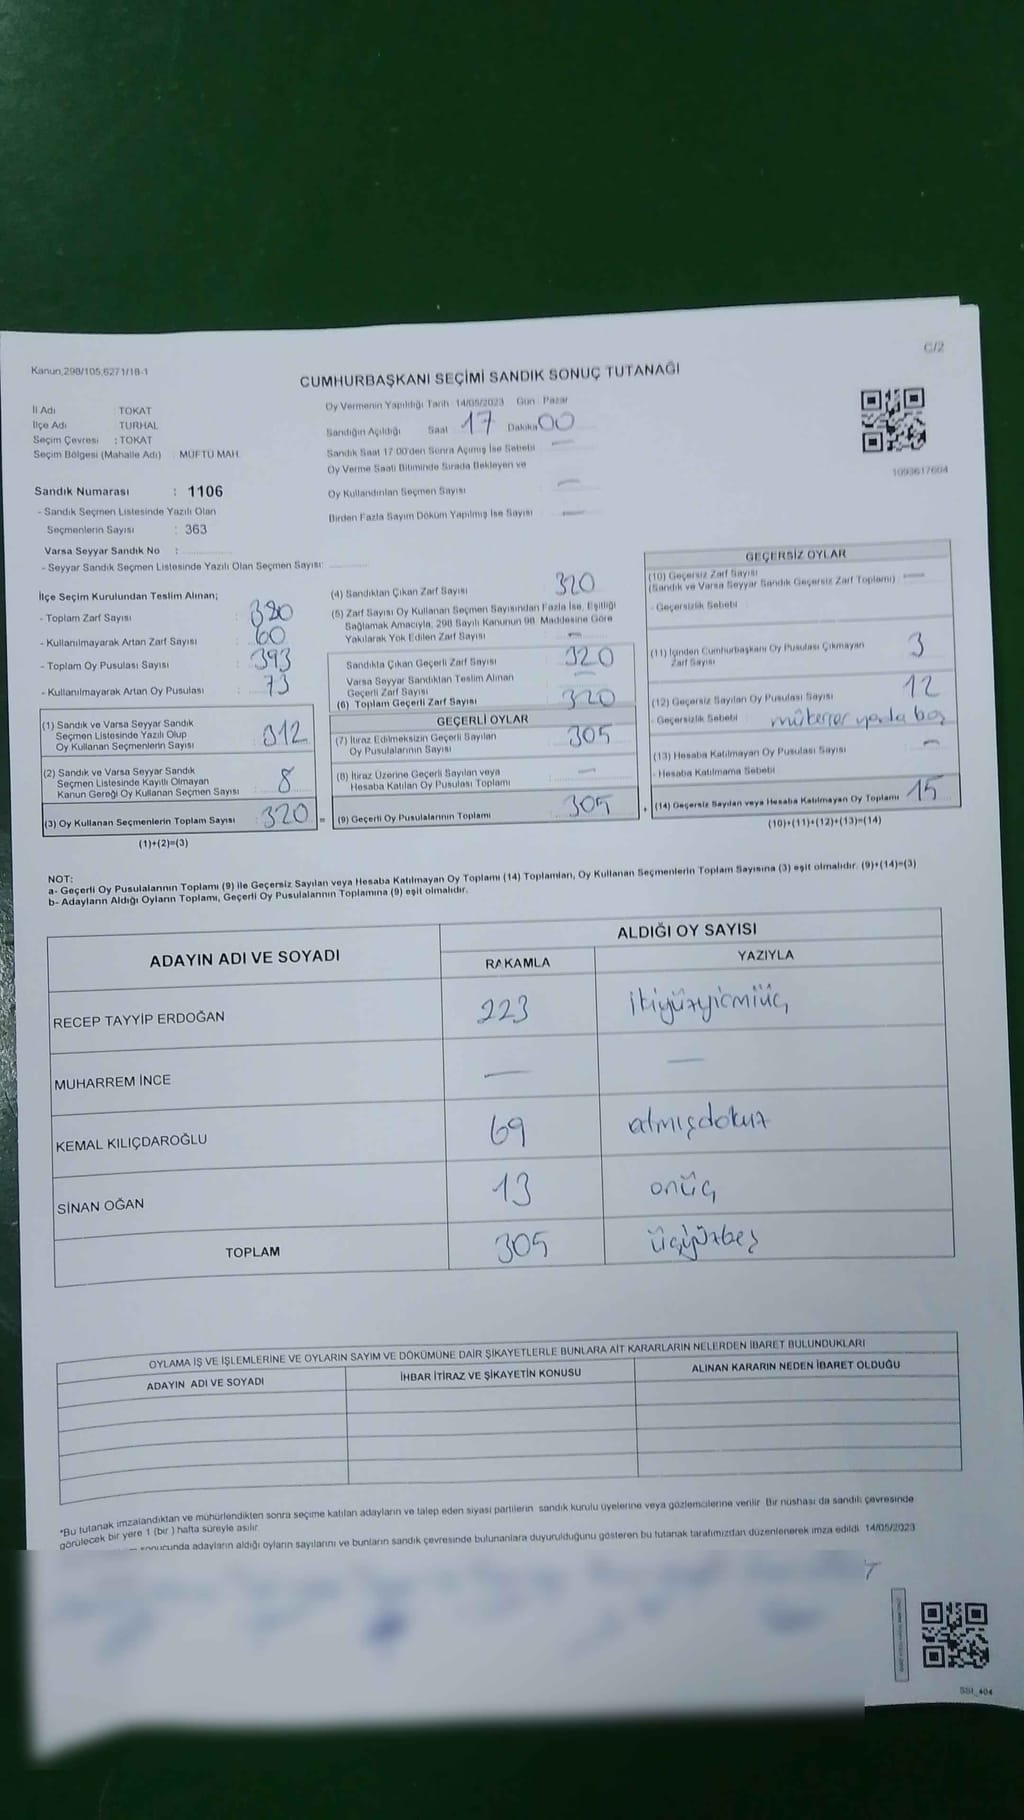 C/2
Kanun,298/105,6271/18-1
CUMHURBAŞKANI SEÇİMİ SANDIK SONUÇ TUTANAĞI
İl Adı : TOKAT
İlçe Adı : TURHAL
Seçim Çevresi : TOKAT
Seçim Bölgesi (Mahalle Adı) : MÜFTÜ MAH.
Oy Vermenin Yapıldığı Tarih 14/05/2023 Gün : Pazar
Sandığın Açıldığı Saat 17 Dakika 00
Sandık Saat 17:00'den Sonra Açımış İse Sebebi —
Oy Verme Saati Bitiminde Sırada Bekleyen ve
Oy Kullandırılan Seçmen Sayısı : —
Birden Fazla Sayım Döküm Yapılmış İse Sayısı : —
1093617604
Sandık Numarası : 1106
- Sandık Seçmen Listesinde Yazılı Olan
Seçmenlerin Sayısı : 363
Varsa Seyyar Sandık No :
- Seyyar Sandık Seçmen Listesinde Yazılı Olan Seçmen Sayısı:
İlçe Seçim Kurulundan Teslim Alınan;
- Toplam Zarf Sayısı : 380
- Kullanılmayarak Artan Zarf Sayısı : 60
- Toplam Oy Pusulası Sayısı : 393
- Kullanılmayarak Artan Oy Pusulası : 73
(1) Sandık ve Varsa Seyyar Sandık
Seçmen Listesinde Yazılı Olup
Oy Kullanan Seçmenlerin Sayısı : 312
(2) Sandık ve Varsa Seyyar Sandık
Seçmen Listesinde Kayıtlı Olmayan
Kanun Gereği Oy Kullanan Seçmen Sayısı : 8
(3) Oy Kullanan Seçmenlerin Toplam Sayısı : 320 =
(1)+(2)=(3)
(4) Sandıktan Çıkan Zarf Sayısı : 320
(5) Zarf Sayısı Oy Kullanan Seçmen Sayısından Fazla İse, Eşitliği
Sağlamak Amacıyla, 298 Sayılı Kanunun 98. Maddesine Göre
Yakılarak Yok Edilen Zarf Sayısı : —
Sandıkta Çıkan Geçerli Zarf Sayısı : 320
Varsa Seyyar Sandıktan Teslim Alınan
Geçerli Zarf Sayısı : —
(6) Toplam Geçerli Zarf Sayısı : 320
GEÇERLİ OYLAR
(7) İtiraz Edilmeksizin Geçerli Sayılan
Oy Pusulalarının Sayısı : 305
(8) İtiraz Üzerine Geçerli Sayılan veya
Hesaba Katılan Oy Pusulası Toplamı : —
(9) Geçerli Oy Pusulalarının Toplamı : 305 +
GEÇERSİZ OYLAR
(10) Geçersiz Zarf Sayısı
(Sandık ve Varsa Seyyar Sandık Geçersiz Zarf Toplamı) : —
- Geçersizlik Sebebi :
(11) İçinden Cumhurbaşkanı Oy Pusulası Çıkmayan
Zarf Sayısı : 3
(12) Geçersiz Sayılan Oy Pusulası Sayısı : 12
- Geçersizlik Sebebi : mükerrer yada boş
(13) Hesaba Katılmayan Oy Pusulası Sayısı : —
- Hesaba Katılmama Sebebi :
(14) Geçersiz Sayılan veya Hesaba Katılmayan Oy Toplamı : 15
(10)+(11)+(12)+(13)=(14)
NOT:
a- Geçerli Oy Pusulalarının Toplamı (9) ile Geçersiz Sayılan veya Hesaba Katılmayan Oy Toplamı (14) Toplamları, Oy Kullanan Seçmenlerin Toplam Sayısına (3) eşit olmalıdır. (9)+(14)=(3)
b- Adayların Aldığı Oyların Toplamı, Geçerli Oy Pusulalarının Toplamına (9) eşit olmalıdır.
ADAYIN ADI VE SOYADI
ALDIĞI OY SAYISI
RAKAMLA YAZIYLA
RECEP TAYYİP ERDOĞAN 223 ikiyüzyirmiüç
MUHARREM İNCE — —
KEMAL KILIÇDAROĞLU 69 atmışdokuz
SİNAN OĞAN 13 onüç
TOPLAM 305 üçyüzbeş
OYLAMA İŞ VE İŞLEMLERİNE VE OYLARIN SAYIM VE DÖKÜMÜNE DAİR ŞİKAYETLERLE BUNLARA AİT KARARLARIN NELERDEN İBARET BULUNDUKLARI
ADAYIN ADI VE SOYADI İHBAR İTİRAZ VE ŞİKAYETİN KONUSU ALINAN KARARIN NEDEN İBARET OLDUĞU
*Bu tutanak imzalandıktan ve mühürlendikten sonra seçime katılan adayların ve talep eden siyasi partilerin sandık kurulu üyelerine veya gözlemcilerine verilir. Bir nüshası da sandık çevresinde
görülecek bir yere 1 (bir ) hafta süreyle asılır.
sonucunda adayların aldığı oyların sayılarını ve bunların sandık çevresinde bulunanlara duyurulduğunu gösteren bu tutanak tarafımızdan düzenlenerek imza edildi. 14/05/2023
SSI_404